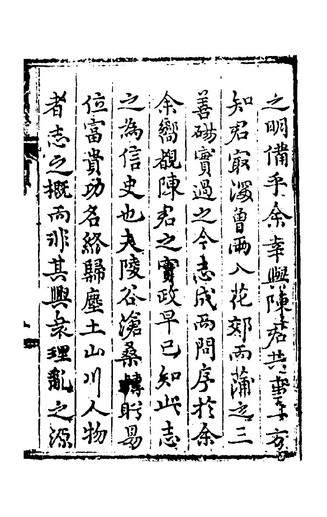 之明備乎余幸與陳君共事一方
知君最深曾兩入花郊而蒲之三
善碭實過之今志成而問序於余
余嚮觀陳君之實政早已知此志
之為信史也夫陵谷滄桑轉盻易
位富貴功名終歸塵土山川人物
者志之概而非其興衰理亂之源